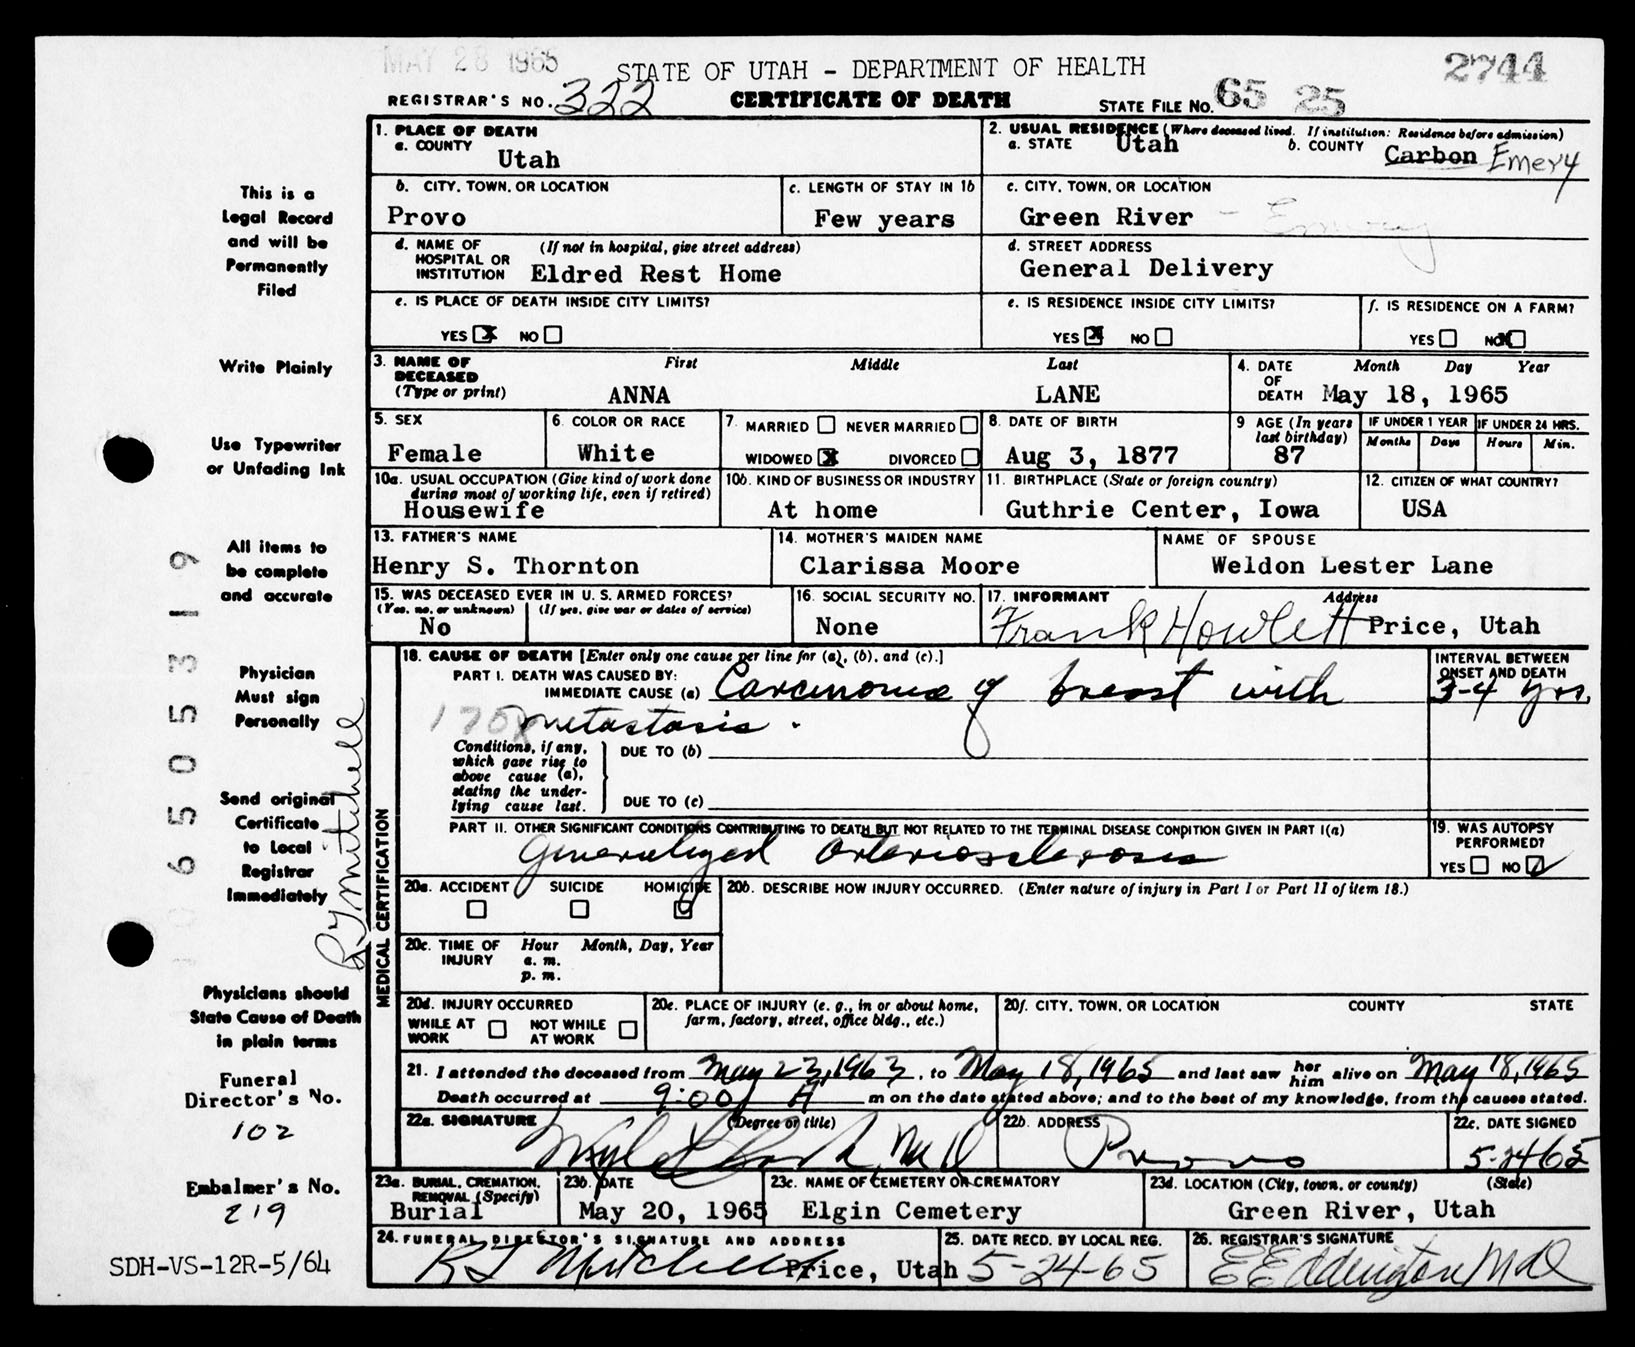 MAY 28 1965
STATE OF UTAH - DEPARTMENT OF HEALTH
2744
REGISTRAR'S NO. 322
CERTIFICATE OF DEATH
STATE FILE NO. 65 25
1. PLACE OF DEATH
a. COUNTY
Utah
2. USUAL RESIDENCE (Where deceased lived. If institution: Residence before admission)
a. STATE Utah
b. COUNTY Carbon Emery
b. CITY, TOWN, OR LOCATION
Provo
c. LENGTH OF STAY IN 1b
Few years
c. CITY, TOWN, OR LOCATION
Green River - Emery
d. NAME OF HOSPITAL OR INSTITUTION
(If not in hospital, give street address)
Eldred Rest Home
d. STREET ADDRESS
General Delivery
e. IS PLACE OF DEATH INSIDE CITY LIMITS?
YES X NO
e. IS RESIDENCE INSIDE CITY LIMITS?
YES X NO
f. IS RESIDENCE ON A FARM?
YES NO X
3. NAME OF DECEASED (Type or print)
First Middle Last
ANNA LANE
4. DATE OF DEATH
Month Day Year
May 18, 1965
5. SEX
Female
6. COLOR OR RACE
White
7. MARRIED NEVER MARRIED
WIDOWED X DIVORCED
8. DATE OF BIRTH
Aug 3, 1877
9 AGE (In years last birthday)
87
IF UNDER 1 YEAR
Months Days
IF UNDER 24 HRS.
Hours Min.
10a. USUAL OCCUPATION (Give kind of work done during most of working life, even if retired)
Housewife
10b. KIND OF BUSINESS OR INDUSTRY
At home
11. BIRTHPLACE (State or foreign country)
Guthrie Center, Iowa
12. CITIZEN OF WHAT COUNTRY?
USA
13. FATHER'S NAME
Henry S. Thornton
14. MOTHER'S MAIDEN NAME
Clarissa Moore
NAME OF SPOUSE
Weldon Lester Lane
15. WAS DECEASED EVER IN U.S. ARMED FORCES?
(Yes, no, or unknown) (If yes, give war or dates of service)
No
16. SOCIAL SECURITY NO.
None
17. INFORMANT Address
Frank Howlett Price, Utah
MEDICAL CERTIFICATION
18. CAUSE OF DEATH [Enter only one cause per line for (a), (b), and (c).]
PART I. DEATH WAS CAUSED BY:
IMMEDIATE CAUSE (a) Carcinoma of breast with
170X metastasis.
INTERVAL BETWEEN ONSET AND DEATH
3-4 yrs.
Conditions, if any, which gave rise to above cause (a), stating the underlying cause last.
DUE TO (b)
DUE TO (c)
PART II. OTHER SIGNIFICANT CONDITIONS CONTRIBUTING TO DEATH BUT NOT RELATED TO THE TERMINAL DISEASE CONDITION GIVEN IN PART I(a)
Generalized Arteriosclerosis
19. WAS AUTOPSY PERFORMED?
YES NO ✓
20a. ACCIDENT SUICIDE HOMICIDE
20b. DESCRIBE HOW INJURY OCCURRED. (Enter nature of injury in Part I or Part II of item 18.)
20c. TIME OF INJURY
Hour Month, Day, Year
a. m.
p. m.
20d. INJURY OCCURRED
WHILE AT WORK NOT WHILE AT WORK
20e. PLACE OF INJURY (e. g., in or about home, farm, factory, street, office bldg., etc.)
20f. CITY, TOWN, OR LOCATION COUNTY STATE
21. I attended the deceased from May 23, 1963, to May 18, 1965 and last saw her him alive on May 18, 1965
Death occurred at 9:00 A m on the date stated above; and to the best of my knowledge, from the causes stated.
22a. SIGNATURE (Degree or title)
M D
22b. ADDRESS
Provo
22c. DATE SIGNED
5-24-65
23a. BURIAL, CREMATION, REMOVAL (Specify)
Burial
23b. DATE
May 20, 1965
23c. NAME OF CEMETERY OR CREMATORY
Elgin Cemetery
23d. LOCATION (City, town, or county) (State)
Green River, Utah
24. FUNERAL DIRECTOR'S SIGNATURE AND ADDRESS
R T Mitchell Price, Utah
25. DATE RECD. BY LOCAL REG.
5-24-65
26. REGISTRAR'S SIGNATURE
E E Eddington MD
This is a
Legal Record
and will be
Permanently
Filed
Write Plainly
Use Typewriter
or Unfading Ink
All items to
be complete
and accurate
Physician
Must sign
Personally
Send original
Certificate
to Local
Registrar
Immediately
Physicians should
State Cause of Death
in plain terms
Funeral
Director's No.
102
Embalmer's No.
219
SDH-VS-12R-5/64
R T Mitchell
0 6 5 0 5 3 1 9